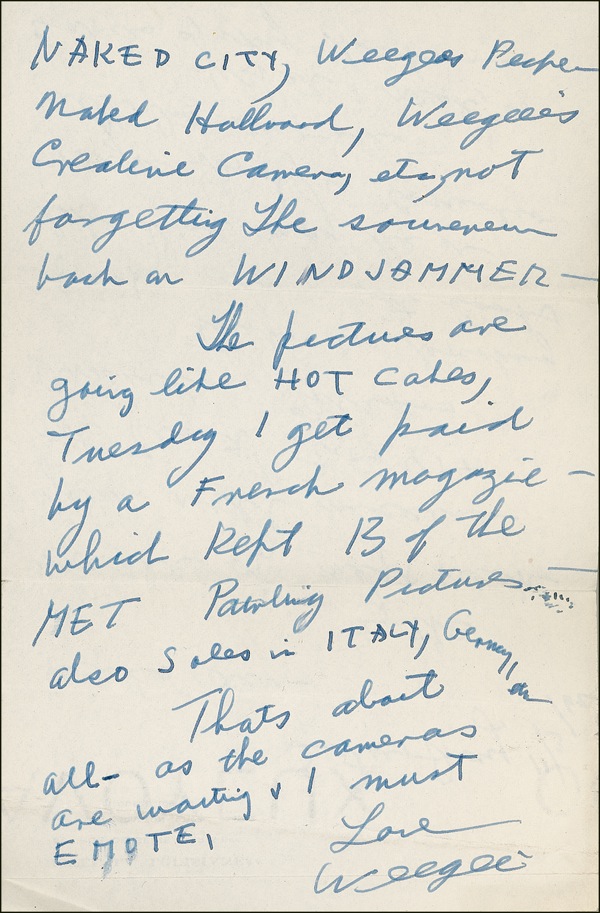 NAKED CITY, Weegees People
Naked Hollywood, Weegee's
Creative Camera, etc, not
forgetting The souvenir
book on WINDJAMMER—
The pictures are
going like HOT Cakes,
Tuesday I get paid
by a French magazie —
which Kept 13 of the —
MET Painting Pictures
also Sales in ITALY, Germany, etc
Thats about
all— as the cameras
are waiting & I must
EMOTE,
Love
Weegee